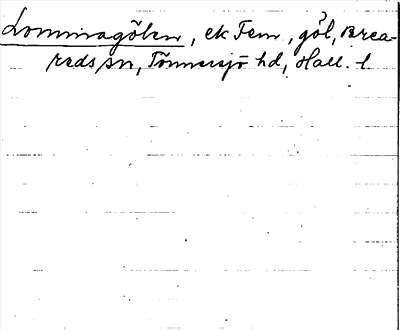 Lommagölen, ek Fem, göl, Brea-
reds sn, Tönnersjö hd, Hall. l.